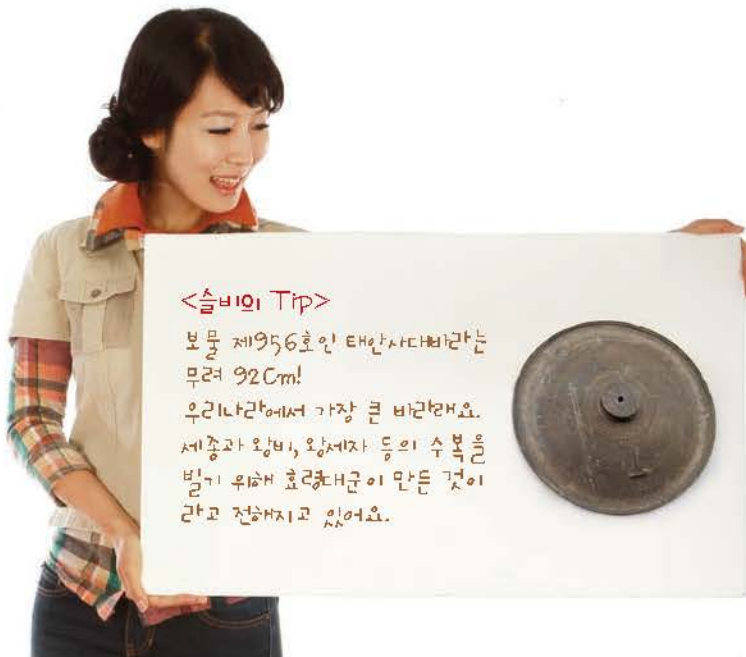 <슬비의 Tip>
보물 제956호인 태안사대바라는
무려 92Cm!
우리나라에서 가장 큰 바라래요.
세종과 왕비, 왕세자 등의 수복을
빌기 위해 효령대군이 만든 것이
라고 전해지고 있어요.